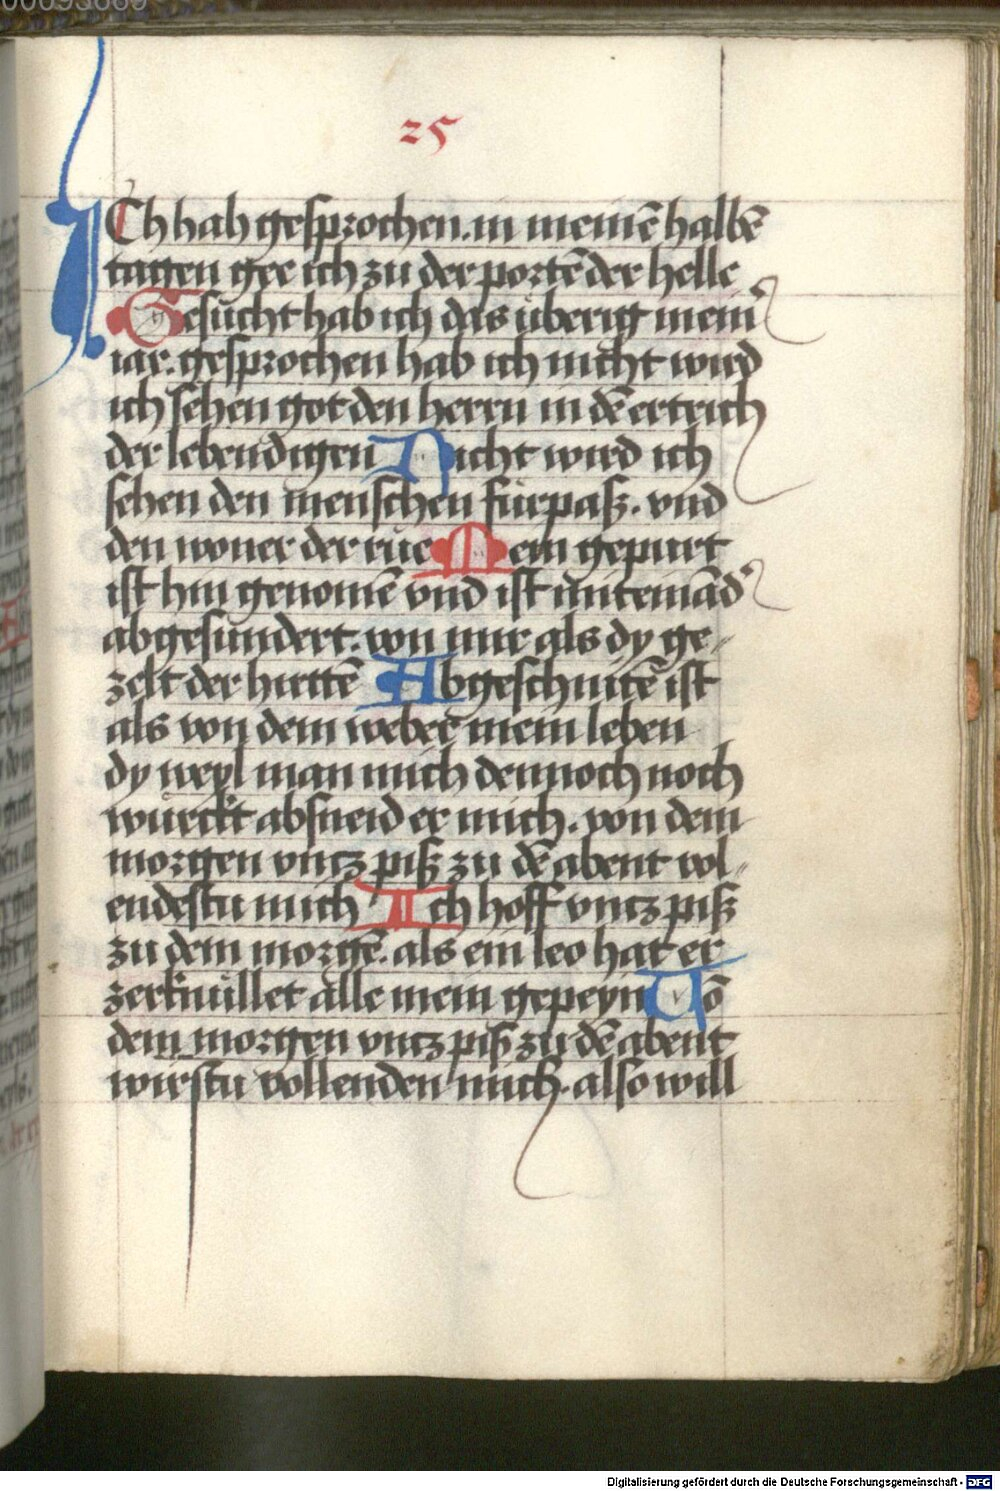 25
ICh hab gesprochen. in meinē halbē
tagen gee ich zu der portē der helle
Gesucht hab ich das ůberig mein᷑
iar. gesprochen hab ich nicht wird
ich sehen got den herrn in dē ertrich
der lebendigen Nicht wird ich
sehen den menschen fürpaß. vnd
den woner der rue Mein gepurt
ist hin genomē vnd ist miteinād᷑
abgesundert. von mir als dy ge⸗
zelt der hirttē Abgeschnitē ist
als von dem weber mein leben
dy weyl man mich dennoch noch
wůrckt absneid er mich. von dem
morgen vntz piß zu dē abent vol⸗
endestu mich Ich hoff vntz piß
zu dem morgē. als ein leo hat er
zerknüllet alle mein gepeyn Vō
dem morgen vntz piß zu dē abent
wirstu vollenden mich. also will
Digitalisierung gefördert durch die Deutsche Forschungsgemeinschaft - DFG